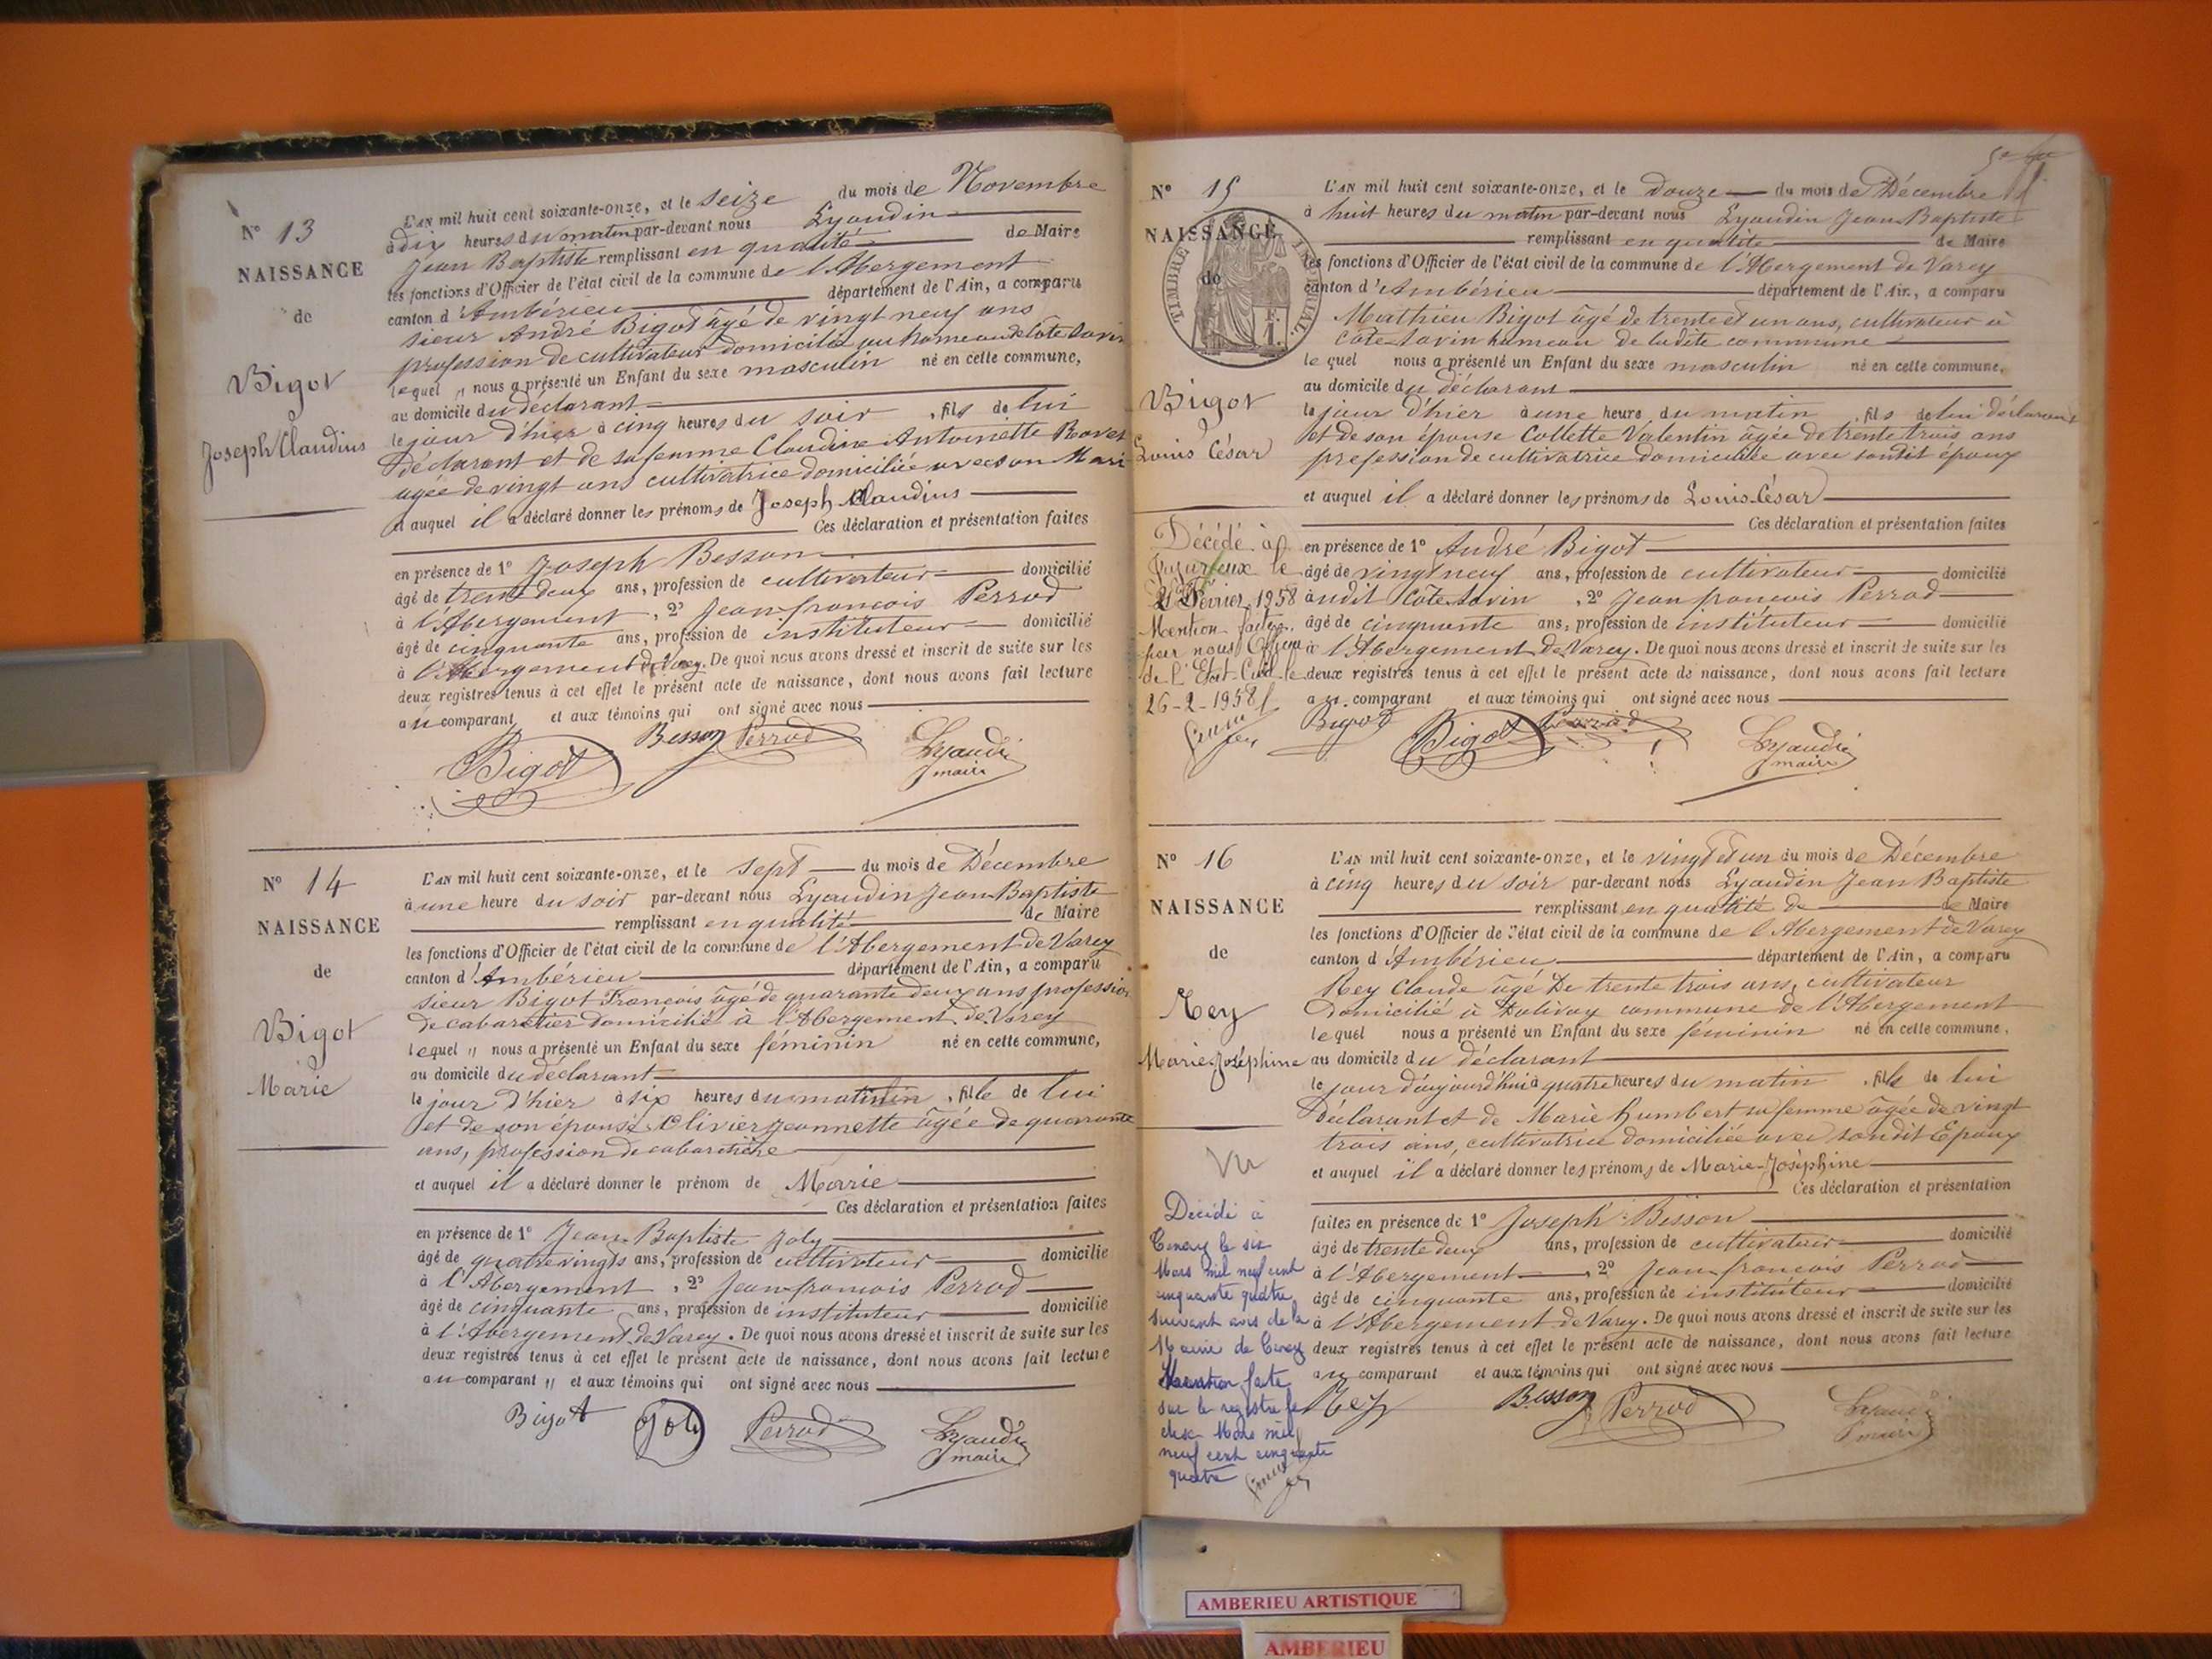 N° 13
NAISSANCE
de
Bigot
Joseph Claudius
L'AN mil huit cent soixante-onze, et le seize du mois de Novembre
à dix heures du matin par-devant nous Lyaudin
Jean Baptiste remplissant en qualité de Maire
les fonctions d'Officier de l'état civil de la commune de l'Abergement
canton d'Ambérieu département de l'Ain, a comparu
sieur André Bigot âgé de vingt neuf ans
profession de cultivateur domicilié au hameau de Côte Savin
lequel nous a présenté un Enfant du sexe masculin né en cette commune,
au domicile du déclarant
le jour d'hier à cinq heures du soir, fils de lui
déclarant et de sa femme Claudine Antoinette
agée de vingt ans cultivatrice domiciliée avec son Mari
et auquel il a déclaré donner les prénoms de Joseph Claudius
Ces déclaration et présentation faites
en présence de 1° Joseph Besson
âgé de trente deux ans, profession de cultivateur domicilié
à l'Abergement, 2° Jean francois Perrod
âgé de cinquante ans, profession de instituteur domicilié
à l'Abergement de Varey. De quoi nous avons dressé et inscrit de suite sur les
deux registres tenus à cet effet le présent acte de naissance, dont nous avons fait lecture
au comparant et aux témoins qui ont signé avec nous
Bigot Besson Perrod Lyaudin
maire
N° 14
NAISSANCE
de
Bigot
Marie
L'AN mil huit cent soixante-onze, et le sept du mois de Décembre
à une heure du soir par-devant nous Lyaudin Jean Baptiste
remplissant en qualité de Maire
les fonctions d'Officier de l'état civil de la commune de l'Abergement de Varey
canton d'Ambérieu département de l'Ain, a comparu
sieur Bigot Francois âgé de quarante deux ans profession
de cabaretier domicilié à l'Abergement de Varey
lequel nous a présenté un Enfant du sexe féminin né en cette commune,
au domicile du déclarant
le jour d'hier à six heures du matin, fille de lui
et de son épouse Olivier Jeannette âgée de quarante
ans, profession de cabaretière
et auquel il a déclaré donner le prénom de Marie
Ces déclaration et présentation faites
en présence de 1° Jean-Baptiste Joly
âgé de quatre vingts ans, profession de cultivateur domicilié
à l'Abergement, 2° Jean francois Perrod
âgé de cinquante ans, profession de instituteur domicilié
à l'Abergement de Varey. De quoi nous avons dressé et inscrit de suite sur les
deux registres tenus à cet effet le présent acte de naissance, dont nous avons fait lecture
au comparant et aux témoins qui ont signé avec nous
Bigot Joly Perrod Lyaudin
maire
N° 15
NAISSANCE
de
TIMBRE IMPÉRIAL
Bigot
Louis César
L'AN mil huit cent soixante-onze, et le douze du mois de Décembre
à huit heures du matin par-devant nous Lyaudin Jean-Baptiste
remplissant en qualité de Maire
les fonctions d'Officier de l'état civil de la commune de l'Abergement de Varey
canton d'Ambérieu département de l'Ain, a comparu
Mathieu Bigot âgé de trente et un ans, cultivateur à
Côte-Savin hameau de ladite commune
lequel nous a présenté un Enfant du sexe masculin né en cette commune,
au domicile du déclarant
le jour d'hier à une heure du matin, fils de lui déclarant
et de son épouse Collette Valentin âgée de trente trois ans
profession de cultivatrice domiciliée avec sondit époux
et auquel il a déclaré donner les prénoms de Louis-César
Ces déclaration et présentation faites
en présence de 1° André Bigot
âgé de vingt neuf ans, profession de cultivateur domicilié
audit Côte-Savin, 2° Jean francois Perrod
âgé de cinquante ans, profession de instituteur domicilié
à l'Abergement de Varey. De quoi nous avons dressé et inscrit de suite sur les
deux registres tenus à cet effet le présent acte de naissance, dont nous avons fait lecture
au comparant et aux témoins qui ont signé avec nous
Bigot Bigot Perrod Lyaudin
maire
Décédé à
Jujurieux le
Février 1958
Mention faite
par nous Officier
de l'Etat-Civil le
26-2-1958
N° 16
NAISSANCE
de
Rey
Marie-Joséphine
L'AN mil huit cent soixante-onze, et le vingt et un du mois de Décembre
à cinq heures du soir par-devant nous Lyaudin Jean Baptiste
remplissant en qualité de de Maire
les fonctions d'Officier de l'état civil de la commune de l'Abergement de Varey
canton d'Ambérieu département de l'Ain, a comparu
Rey Claude âgé de trente trois ans, cultivateur
domicilié à Dalivoy commune de l'Abergement
lequel nous a présenté un Enfant du sexe féminin né en cette commune,
au domicile du déclarant
le jour d'aujourd'hui à quatre heures du matin, fille de lui
déclarant et de Marie humbert sa femme âgée de vingt
trois ans, cultivatrice domiciliée avec sondit Epoux
et auquel il a déclaré donner les prénoms de Marie-Joséphine
Ces déclaration et présentation
faites en présence de 1° Joseph Besson
âgé de trente deux ans, profession de cultivateur domicilié
à l'Abergement, 2° Jean francois Perrod
âgé de cinquante ans, profession de instituteur domicilié
à l'Abergement de Varey. De quoi nous avons dressé et inscrit de suite sur les
deux registres tenus à cet effet le présent acte de naissance, dont nous avons fait lecture
au comparant et aux témoins qui ont signé avec nous
Rey Besson Perrod Lyaudin
maire
Vu
Décédé à
Tenay le six
Mars mil neuf cent
cinquante quatre
suivant avis de la
Mairie de Tenay
Mention faite
sur le registre le
dix Mars mil
neuf cent cinquante
quatre
AMBERIEU ARTISTIQUE
AMBERIEU